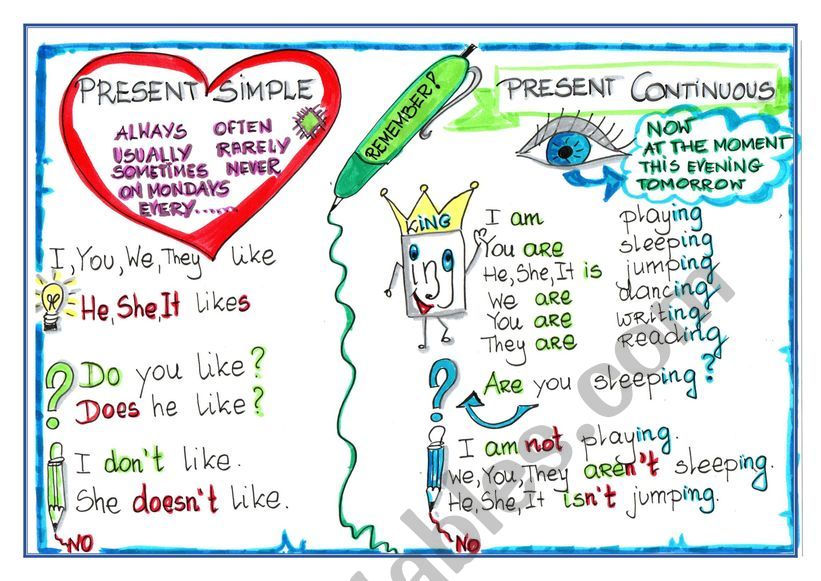 PRESENT SIMPLE
ALWAYS OFTEN
USUALLY RARELY
SOMETIMES NEVER
ON MONDAYS
EVERY......
I, You, We, They like
He, She, It likes
? Do you like?
Does he like?
I don't like.
She doesn't like.
NO
REMEMBER!
PRESENT CONTINUOUS
NOW
AT THE MOMENT
THIS EVENING
TOMORROW
KiNG
ing
I am playing
You are sleeping
He, She, It is jumping
We are dancing
You are writing
They are reading
? Are you sleeping?
I am not playing.
We, You, They aren't sleeping.
He, She, It isn't jumping.
NO
ables.com